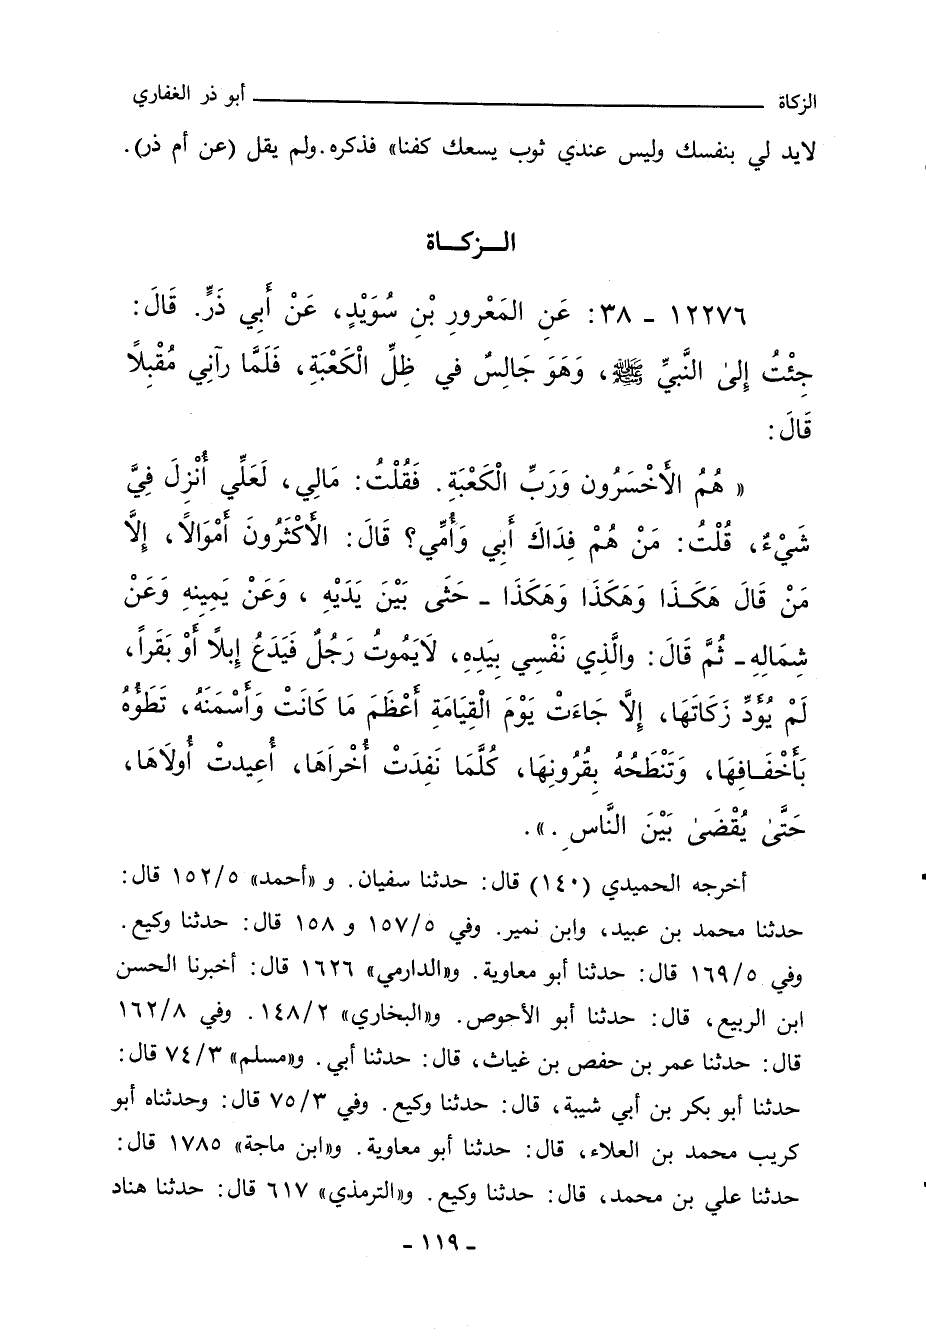 الزكاة ــــــــــــــــــــ أبو ذر الغفاري
لابد لي بنفسك وليس عندي ثوب يسعك كفنا» فذكره. ولم يقل (عن أم ذر).
الـــزكـــاة
١٢٢٧٦ - ٣٨: عَنِ المَعْرورِ بْنِ سُوَيْدٍ، عَنْ أَبِي ذَرٍّ. قَالَ:
جِئْتُ إِلىٰ النَّبيِّ ﷺ، وَهَوَ جَالِسٌ في ظِلِّ الْكَعْبَةِ، فَلَمَّا رآنِي مُقْبِلاً
قَالَ:
« هُمُ الأَخْسَرُون وَرَبِّ الْكَعْبَةِ. فَقُلْتُ: مَالِي، لَعَلِّي أُنْزِلَ فِيَّ
شَيْءٌ، قُلْتُ: مَنْ هُمْ فِدَاكَ أَبي وَأُمِّي؟ قَالَ: الأَكْثَرُونَ أَمْوَالاً، إِلَّا
مَنْ قَالَ هَكَـذَا وَهَكَذَا وَهَكَذَا - حَثَى بَيْنَ يَدَيْهِ ، وَعَنْ يَمِينِهِ وَعَنْ
شِمَالِهِ - ثُمَّ قَالَ: والَّذِي نَفْسِي بِيَدِهِ، لَايَمُوتُ رَجُلٌ فَيَدَعُ إِبلاً أَوْ بَقَراً،
لَمْ يُؤَدِّ زَكَاتَهَا، إِلَّا جَاءَتْ يَوْمَ الْقِيَامَةِ أَعْظَمَ مَا كَانَتْ وَأَسْمَنَهُ، تَطَؤُهُ
بَأَخْفَـافِهَا، وَتَنْطَحُهُ بِقُرُونِهَا، كُلَّمَا نَفِدَتْ أُخْرَاهَا، أُعِيدتْ أُولَاهَا،
حَتَّىٰ يُقْضَىٰ بَيْنَ النَّاسِ .».
أخرجه الحميدي (١٤٠) قال: حدثنا سفيان. و «أحمد» ١٥٢/٥ قال:
حدثنا محمد بن عبيد، وابن نمير. وفي ١٥٧/٥ و ١٥٨ قال: حدثنا وكيع.
وفي ١٦٩/٥ قال: حدثنا أبو معاوية. و«الدارمي» ١٦٢٦ قال: أخبرنا الحسن
ابن الربيع، قال: حدثنا أبو الأحوص. و«البخاري» ١٤٨/٢. وفي ١٦٢/٨
قال: حدثنا عمر بن حفص بن غياث، قال: حدثنا أبي. و«مسلم» ٧٤/٣ قال:
حدثنا أبو بكر بن أبي شيبة، قال: حدثنا وكيع. وفي ٧٥/٣ قال: وحدثناه أبو
كريب محمد بن العلاء، قال: حدثنا أبو معاوية. و«ابن ماجة» ١٧٨٥ قال:
حدثنا علي بن محمد، قال: حدثنا وكيع. و«الترمذي» ٦١٧ قال: حدثنا هناد
- ١١٩ -